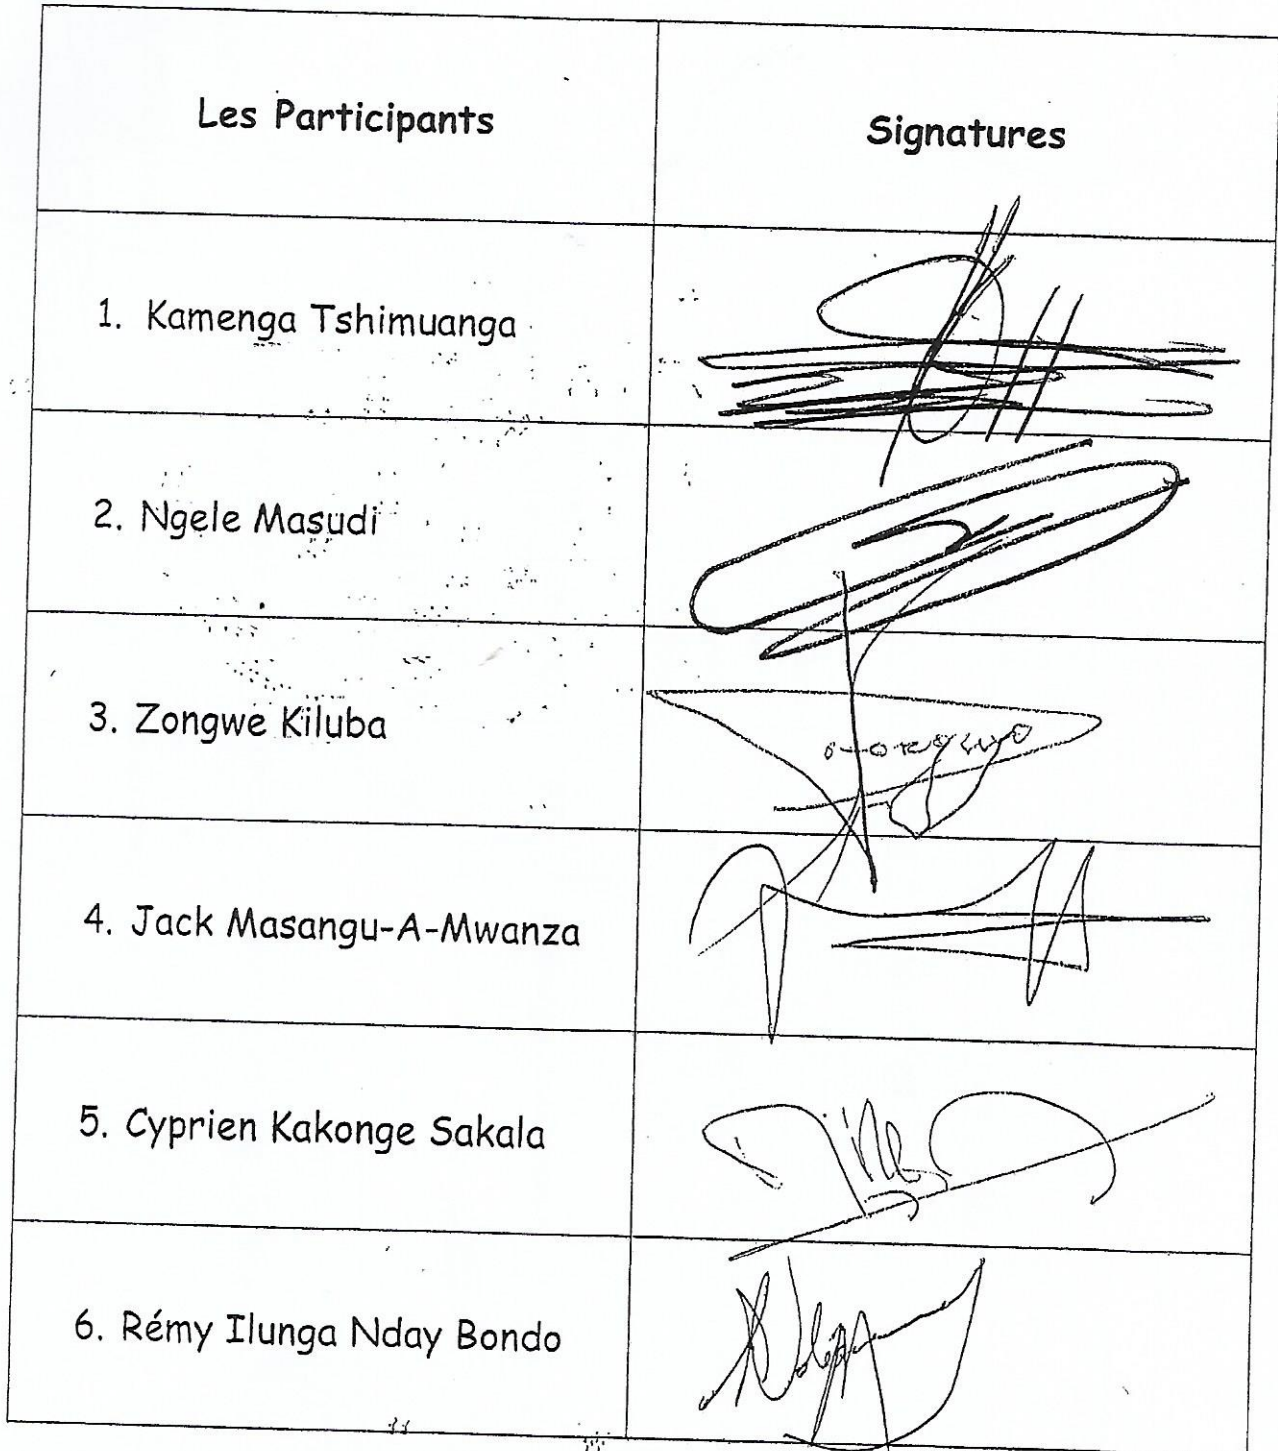 Les Participants
Signatures
1. Kamenga Tshimuanga
2. Ngele Masudi
3. Zongwe Kiluba
4. Jack Masangu-A-Mwanza
5. Cyprien Kakonge Sakala
6. Rémy Ilunga Nday Bondo